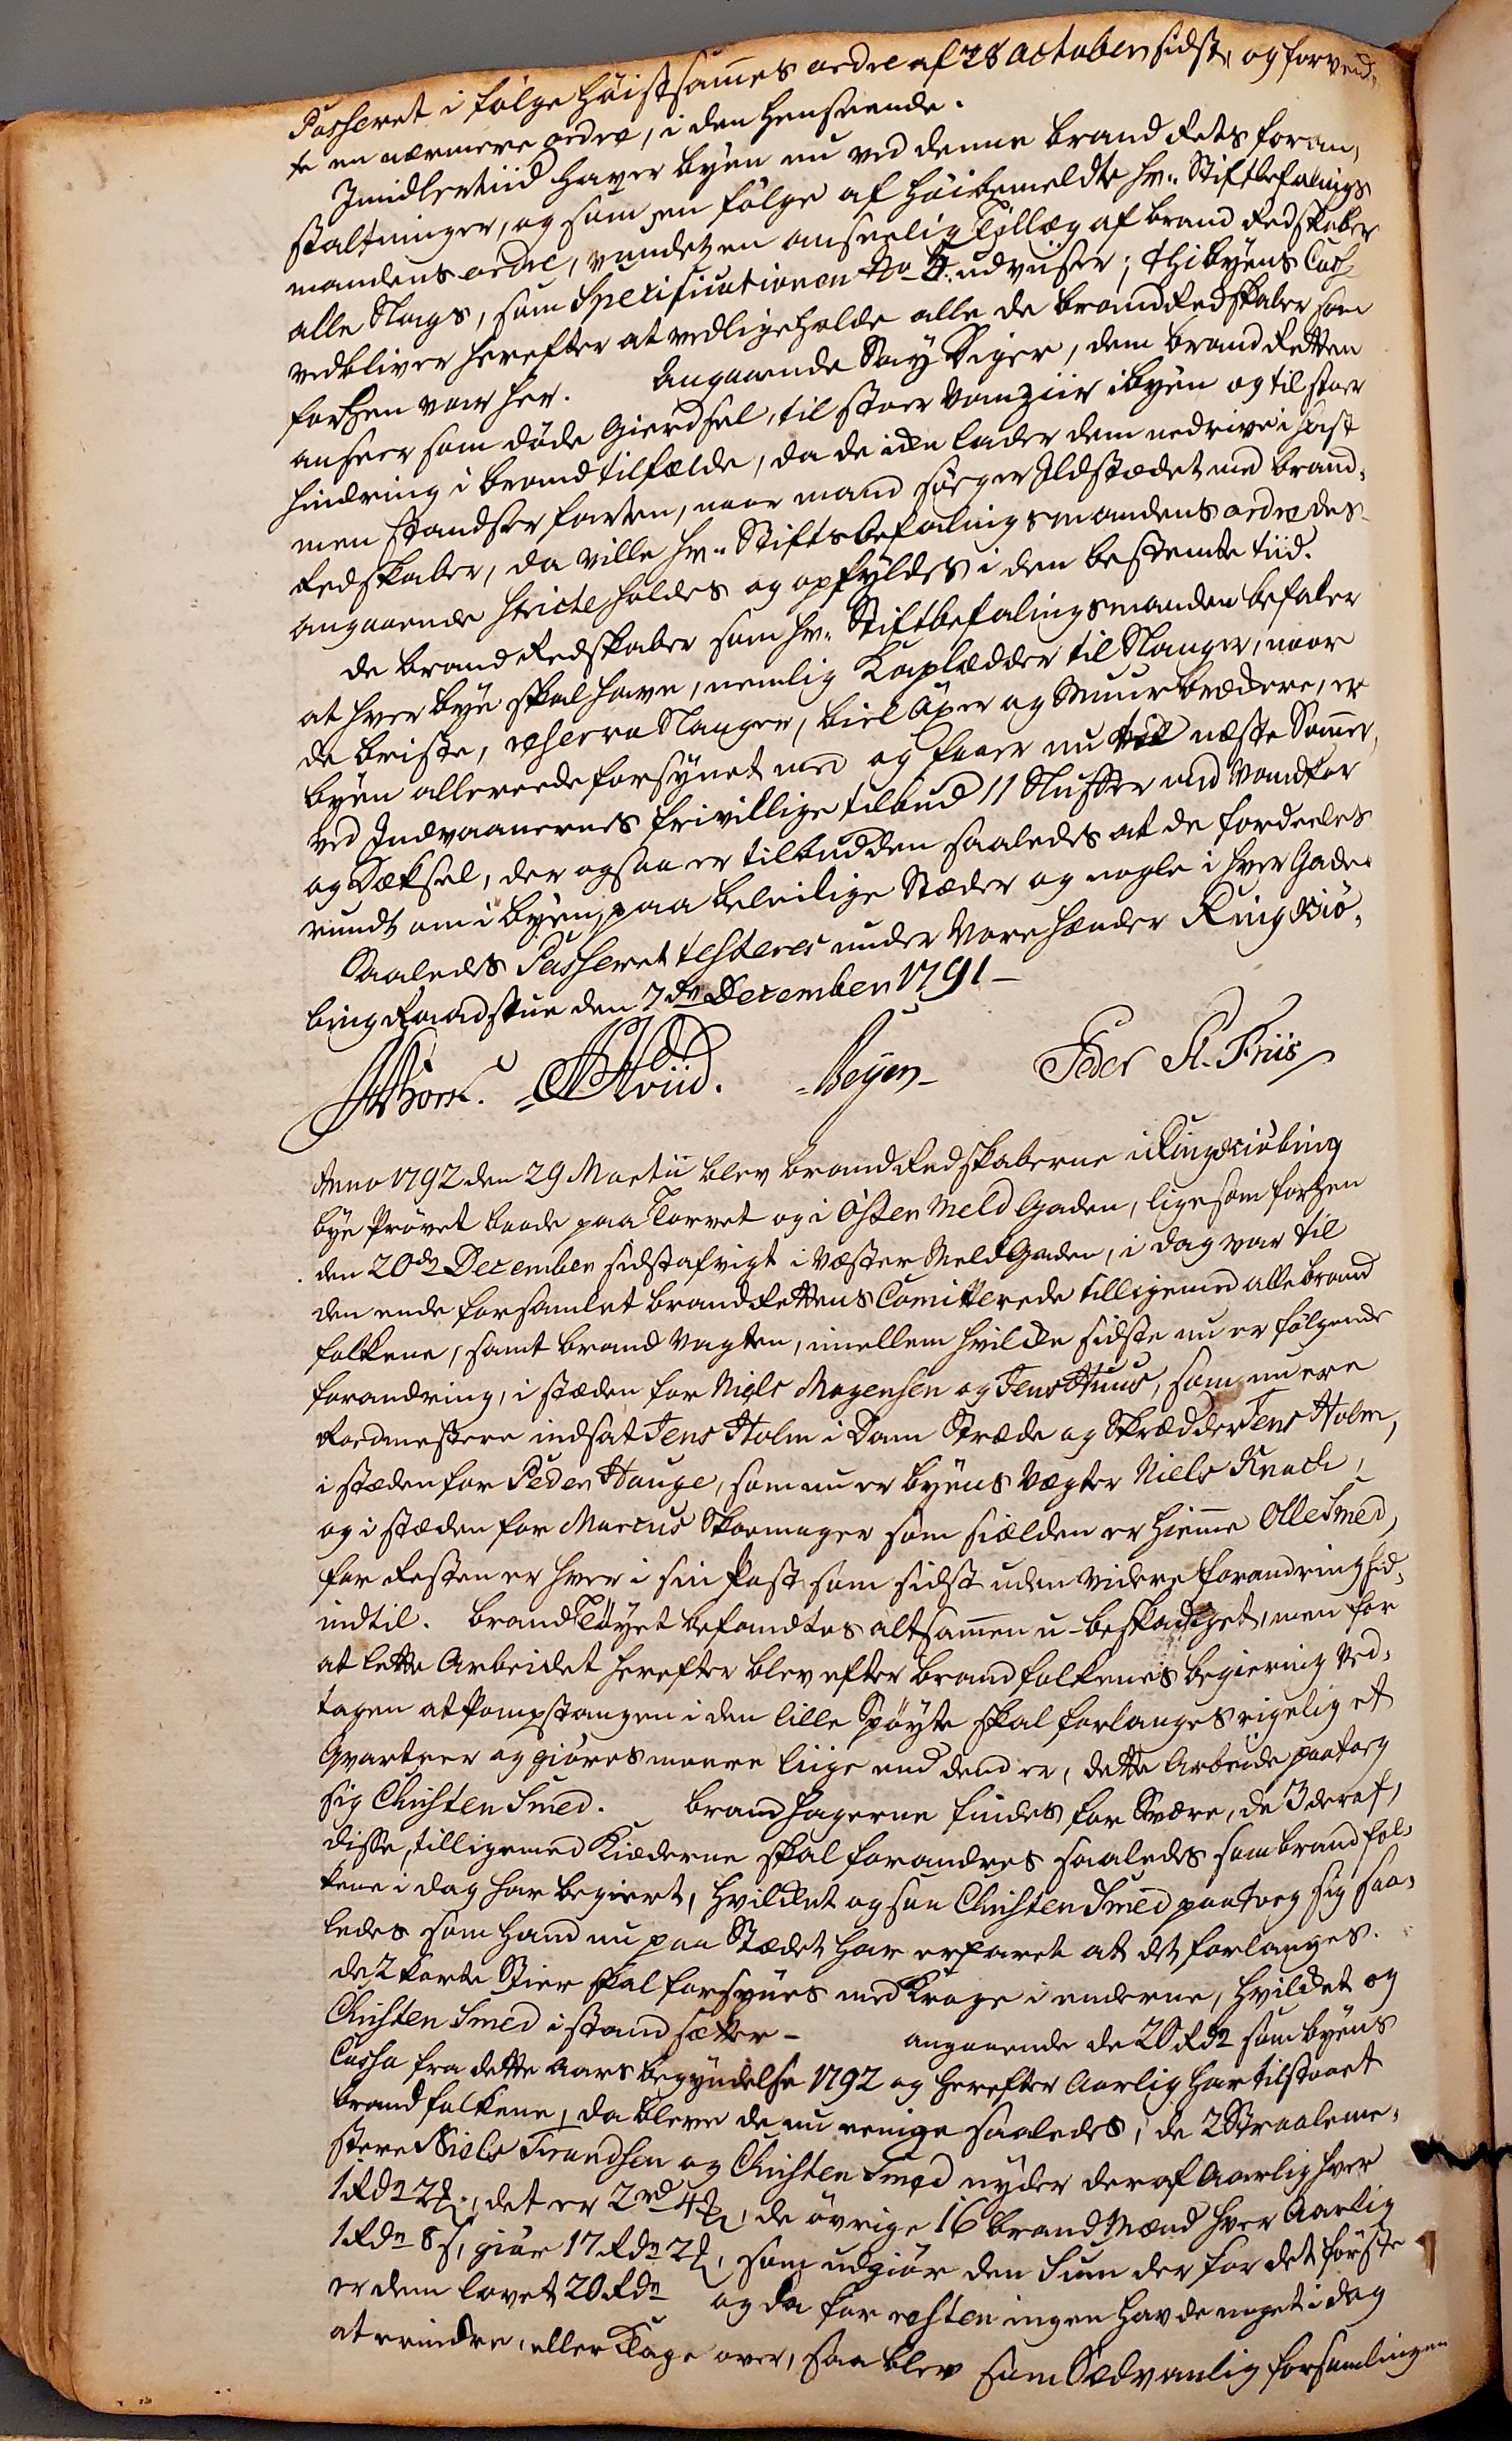 Passeret i følge Høistsam̄es ordre af 28 october sidst, og forvend-
te en nærmere ordre, i den henseende.
Imidlertiid haver byen nu ved denne brand Rets foran-
staltninger, og som en følge af høibemeldte Hr. Stiftbefalings
mandens ordre, vundet en anseelig Tillæg af brand Redskaber
alle Slags, som Specificationen No 4. udviser; thi byens Cass
vedbliver herefter at vedligeholde alle de brand Redskaber som
forhen var her. Angaaende Say Siger, dem brand Retten
anseer som døde Gierdsel, til stoer Vanziir i byen og til stoer
hindring i brandtilfælde, da de icke lader dem nedrive i hast
men standser farten, naar mand søger Ildstædet med brand-
Redskaber, da ville Hr. Stiftsbefalingsmandens ordre des-
angaaende stricte holdes og opfyldes i den bestemte tiid.
De brand Redskaber som Hr. Stiftbefalingsmanden befaler
at hver bye skal have, nemlig Kaplædder til Slanger, naar
de briste, reserva Slanger, biel Øxer og Muurbrækkere, er
byen allereede forsynet med og faaer nu til næste Som̄er,
ved Indvaanernes frivillige tilbud 11 Sluffer med Vandkar
og Dæksel, der ogsaa er tilbudden saaledes at de fordeeles
rundt om i byen, paa beleilige Stæder og nogle i hver Gade.
Saaledes Passeret testeres under Vore hænder Ringkiø-
bing Raadstue den 7de December 1791 –
Hviid. Beyer Peder A. Friis
Anno 1792 den 29 Martii blev brand Redskaberne i Ringkiøbing
bye Prøvet baade paa Torvet og i Øster Meld Gaden, ligesom forhen
den 20de December sidstafvigt i Væster Meld Gaden, i dag var til
den ende forsamlet brand Rettens Comitterede tilligemed alle brand
folkene, samt brand Vagten, imellem hvilcke sidste nu er følgende
forandring, i stæden for Niels Mogensen og Jens Huus, som nu ere
Rodmestere indsat Jens Holm i Dam Stræde og Skrædder Jens Holm,
i stæden for Peder Hauge, som nu er byens Vægter Niels Knach,
og i stæden for Marcus Skoemager som siælden er hiem̄e Olle Smed,
for Resten er hver i sin Post som sidst uden videre forandring hid-
indtil. brand Tøyet befandtes altsam̄en u-beskadiget, men for
at lette Arbeidet herefter blev efter brandfolkenes begiering ved-
tagen at Pompstangen i den lille Spøyte skal forlanges rigelig et
Qvarteer og giøres meere liige end dend er, dette Arbeide paatog
sig Christen Smed. brandhagerne findes for Svære, de 3 deraf,
disse, tilligemed Kiæderne skal forandres saaledes som brandfol-
kene i dag har begiert, hvilcket ogsaa Christen Smed paatog sig saa-
ledes som hand nu paa Stædet har erfaret at det forlanges.
de 2 korte Stier skal forsynes med Kroge i enderne, hvilcket og
Christen Smed i stand sætter – angaaende de 20 Rdr som byens
Cassa fra dette Aars begyndelse 1792 og herefter Aarlig har tilstaaet
brandfolkene, da bleve de nu eenige saaledes, de 2 Straaleme-
stere Niels Frandsen og Christen Smed nyder deraf Aarlig hver
1 Rdr 2 ꝟ, det er 2 rd 4 ꝟ, de øvrige 16 brand Mænd hver Aarlig
1 Rdr 8 s, giør 17 Rdr 2 ꝟ, som udgiør den Sum der for det første
er dem lovet 20 Rdr og da for resten ingen havde noget i dag
at erindre, eller Klage over, saa blev som Sædvanlig forsamlingen